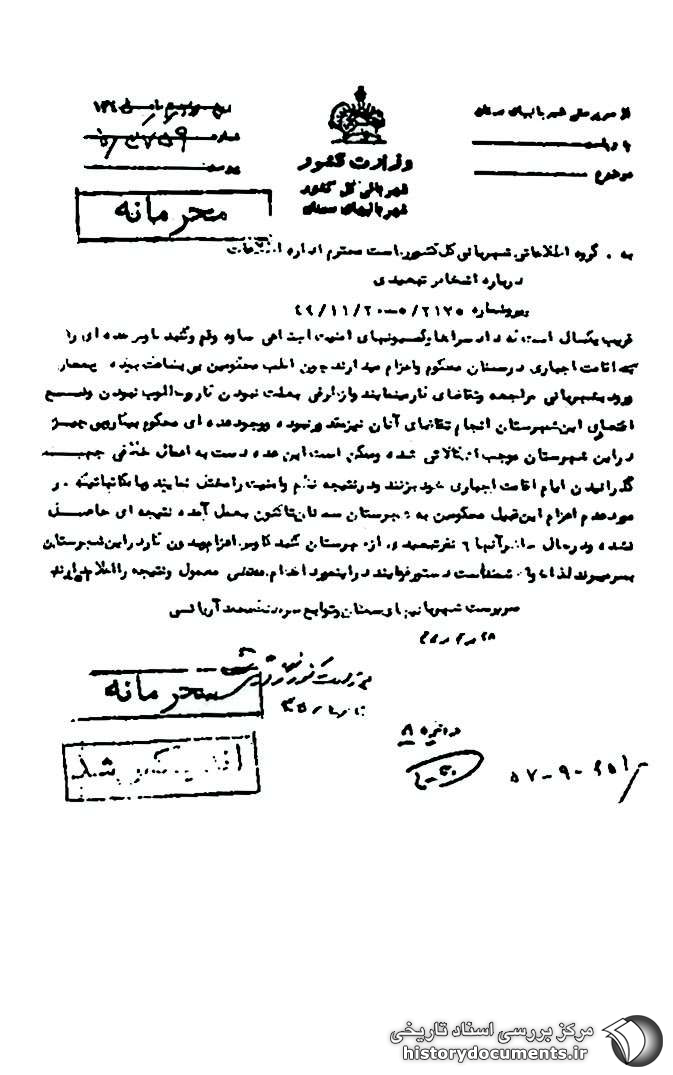 از سرپرستی شهربانیهای سمنان
به ریاست
موضوع
وزارت کشور
شهربانی کل کشور
شهربانیهای سمنان
شماره
پیوست
محرمانه
به . گروه اطلاعاتی شهربانی کل کشور ریاست محترم اداره اطلاعات
درباره اشخاص تبعیدی
پیرو شماره ۵/۲۱۷۵-
قریب یکسال است که دادسراها و کمیسیونهای امنیت اجتماعی ساوه و قم و گنبد کاوس عده ای را
به اقامت اجباری در سمنان محکوم و اعزام میدارند چون اغلب محکومین بی بضاعت بوده بمحض
ورود بشهربانی مراجعه و تقاضای کار مینمایند و از طرفی بعلت نبودن کار و مطلوب نبودن وضع
اقتصادی این شهرستان انجام تقاضای آنان نیز مقدور نبوده و وجود عده ای محکوم بیکار بی چیز
در این شهرستان موجب اشکالاتی شده و ممکن است این عده دست به اعمال خلافی جهت
گذرانیدن ایام اقامت اجباری خود بزنند و در نتیجه نظم و امنیت را مختل نمایند با مکاتباتیکه در
مورد عدم اعزام این قبیل محکومین به شهرستان سمنان تاکنون بعمل آمده نتیجه ای حاصل
نشده و در حال حاضر آنها ۶ نفر تبعیدی از شهرستان گنبد کاوس اعزام و بدون کار در این شهرستان
بسر میبرند لذا خواهشمند است دستور فرمایند در اینمورد اقدام مقتضی معمول و نتیجه را اعلام دارند
سرپرست شهربانیهای سمنان و توابع سرهنگ محمد آریائی
محرمانه
دایره ۸
۵۷-۹-
اندیکس شد
مرکز بررسی اسناد تاریخی
historydocuments.ir